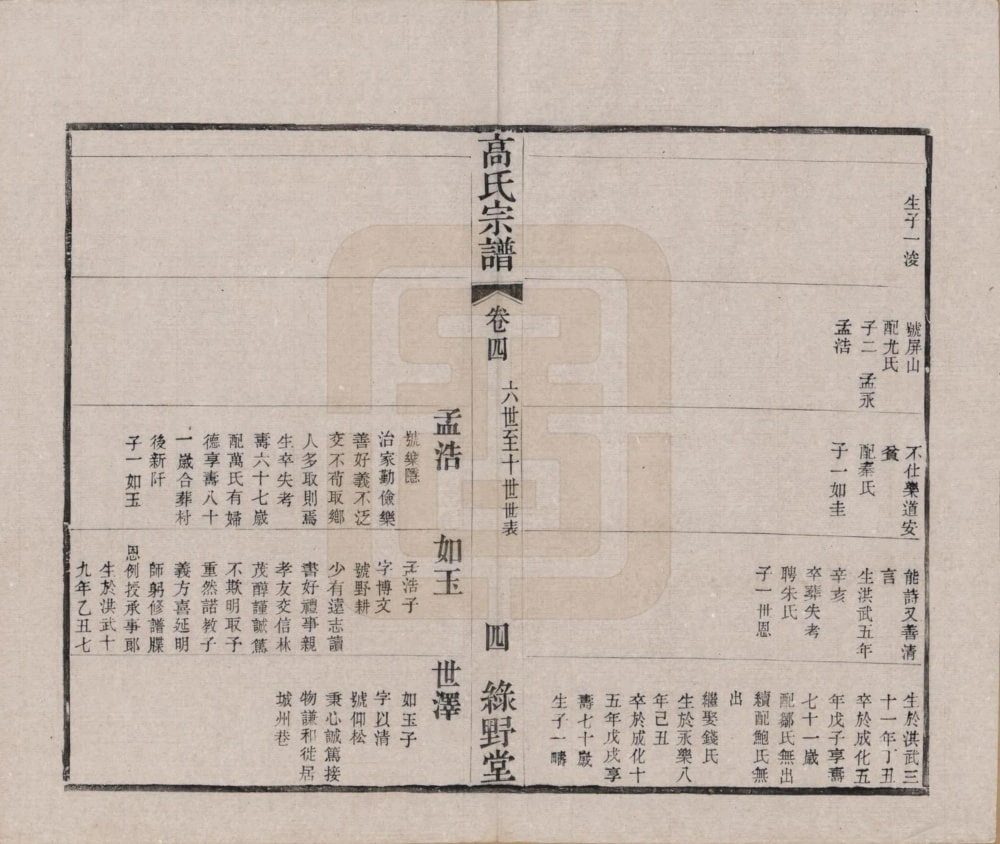 生子一浚
號屏山
配尤氏
子二　孟永
孟浩
不仕樂道安
貧
配秦氏
子一如圭
能詩又善清
言
生洪武五年
辛亥
卒葬失考
聘朱氏
子一世恩
生於洪武三
十一年丁丑
卒於成化五
年戊子享壽
七十一歲
配鄒氏無出
續配鮑氏無
出
繼娶錢氏
生於永樂八
年己丑
卒於成化十
五年戊戌享
壽七十歲
生子一疇
高氏宗譜
卷四
六世至十世世表
四
綠野堂
孟浩
號樂隱
治家勤儉樂
善好義不泛
交不苟取鄉
人多取則焉
生卒失考
壽六十七歲
配萬氏有婦
德享壽八十
一歲合葬村
後新阡
子一如玉
如玉
孟浩子
字博文
號野耕
少有遠志讀
書好禮事親
孝友交信林
茂醇謹誠篤
不欺明取予
重然諾教子
義方喜延明
師躬修譜牒
恩例授承事郎
生於洪武十
九年乙丑七
世澤
如玉子
字以清
號仰松
秉心誠篤接
物謙和徙居
城州巷